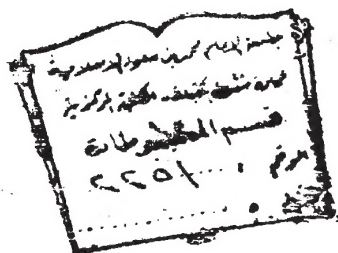 جامعة الإمام محمد بن سعود الإسلامية
عمادة شئون المكتبات المكتبة المركزية
قسم المخطوطات
الرقم